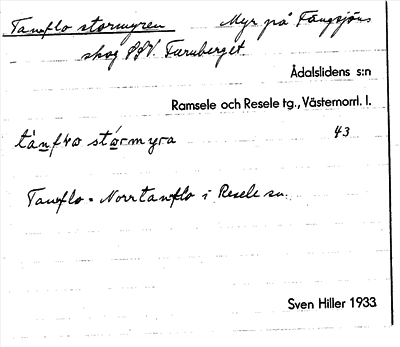 Tannflo stormyren Myr på Fängsjöns
skog SSV. Furuberget.
Ådalslidens s:n
Ramsele och Resele tg., Västernorrl. l.
stórmyra 43
Tannflo = Norrtannflo i Resele sn.
Sven Hiller 1933